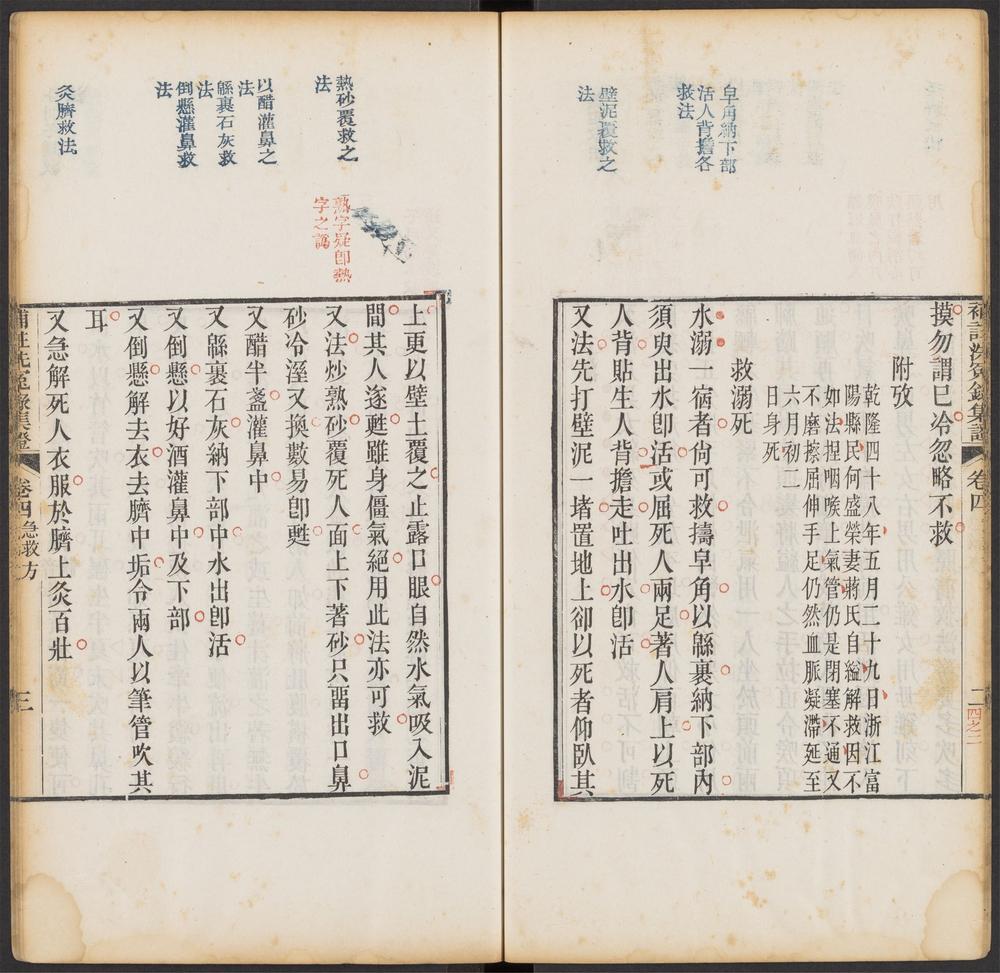 補註洗冤錄集證
卷四
二
四之二
摸勿謂已冷忽略不救
附攷
乾隆四十八年五月二十九日浙江富
陽縣民何盛榮妻蔣氏自縊解救因不
如法揑咽喉上氣管仍是閉塞不通又
不磨擦屈伸手足仍然血脈凝滯延至
六月初二
日身死
救溺死
水溺一宿者尙可救擣皁角以緜裹納下部內
須臾出水卽活或屈死人兩足著人肩上以死
人背貼生人背擔走吐出水卽活
又法先打壁泥一堵置地上卻以死者仰臥其
皁角納下部
活人背擔各
救法
壁泥覆救之
法
上更以壁土覆之止露口眼自然水氣吸入泥
間其人遂甦雖身僵氣絕用此法亦可救
又法炒熟砂覆死人面上下著砂只畱出口鼻
砂冷溼又換數易卽甦
又醋半盞灌鼻中
又緜裹石灰納下部中水出卽活
又倒懸以好酒灌鼻中及下部
又倒懸解去衣去臍中垢令兩人以筆管吹其
耳
又急解死人衣服於臍上灸百壯
熱砂覆救之
法
以醋灌鼻之
法
緜裹石灰救
法
倒懸灌鼻救
法
灸臍救法
熟字疑卽熱
字之譌
補註洗冤錄集證
卷四
急救方
三